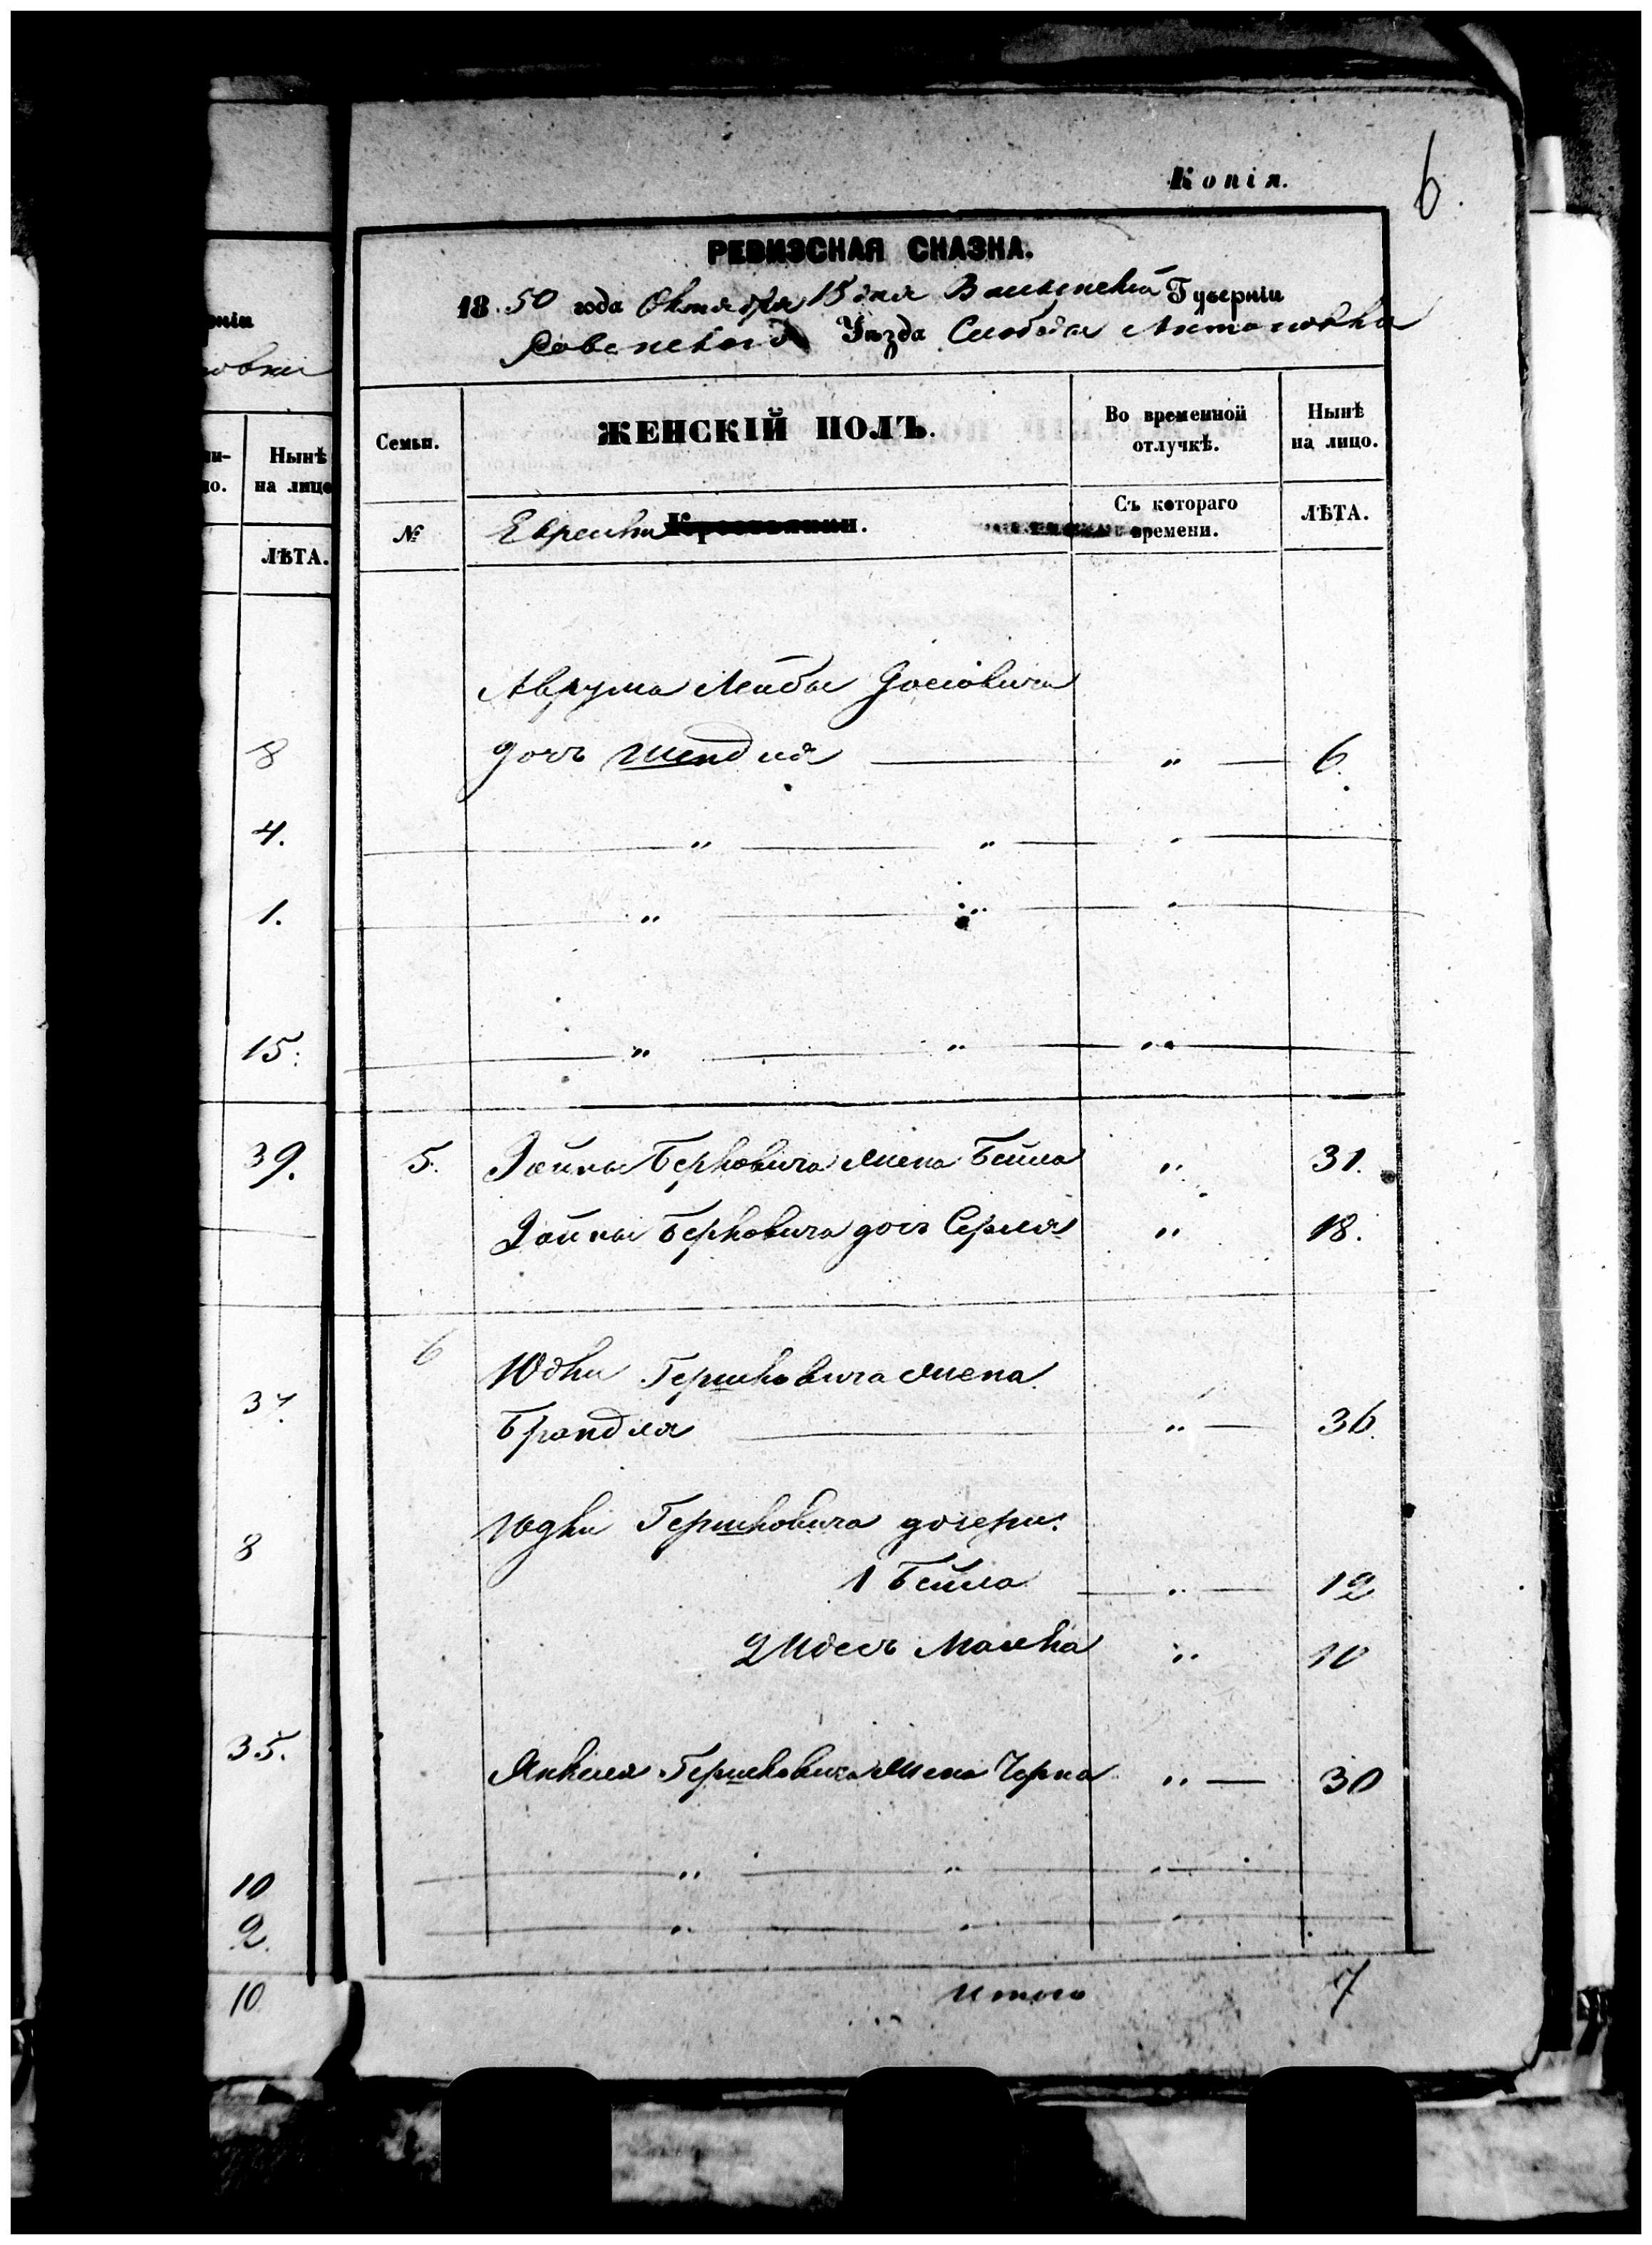 Копія.
6.
РЕВИЗСКАЯ СКАЗКА.
18 50 года Октября 15 дня Волынской Губерніи
Ровенского Уѣзда Слободы Антоновки
ніи
Семьи.
ЖЕНСКІЙ ПОЛЪ.
Во временной отлучкѣ.
Нынѣ на лицо.
Нынѣ на лицо
№
Еврейки
Съ котораго времени.
ЛѢТА.
ЛѢТА.
Аврума Лейбы Іосіовича
8
дочь Шендля " 6.
4. " " "
1. " " "
15. " " "
39. 5. Зайны Берковича жена Бейла " 31.
Зайны Берковича дочь Серля " 18.
6
Юдки Гершковича жена
37
Брандля " 36.
Юдки Гершковича дочери:
8
1 Бейла " 12
2 Идесь Малка " 10
35.
Янкеля Гершковича жена Черна " 30
10 " " "
2. " " "
10
Итого 7